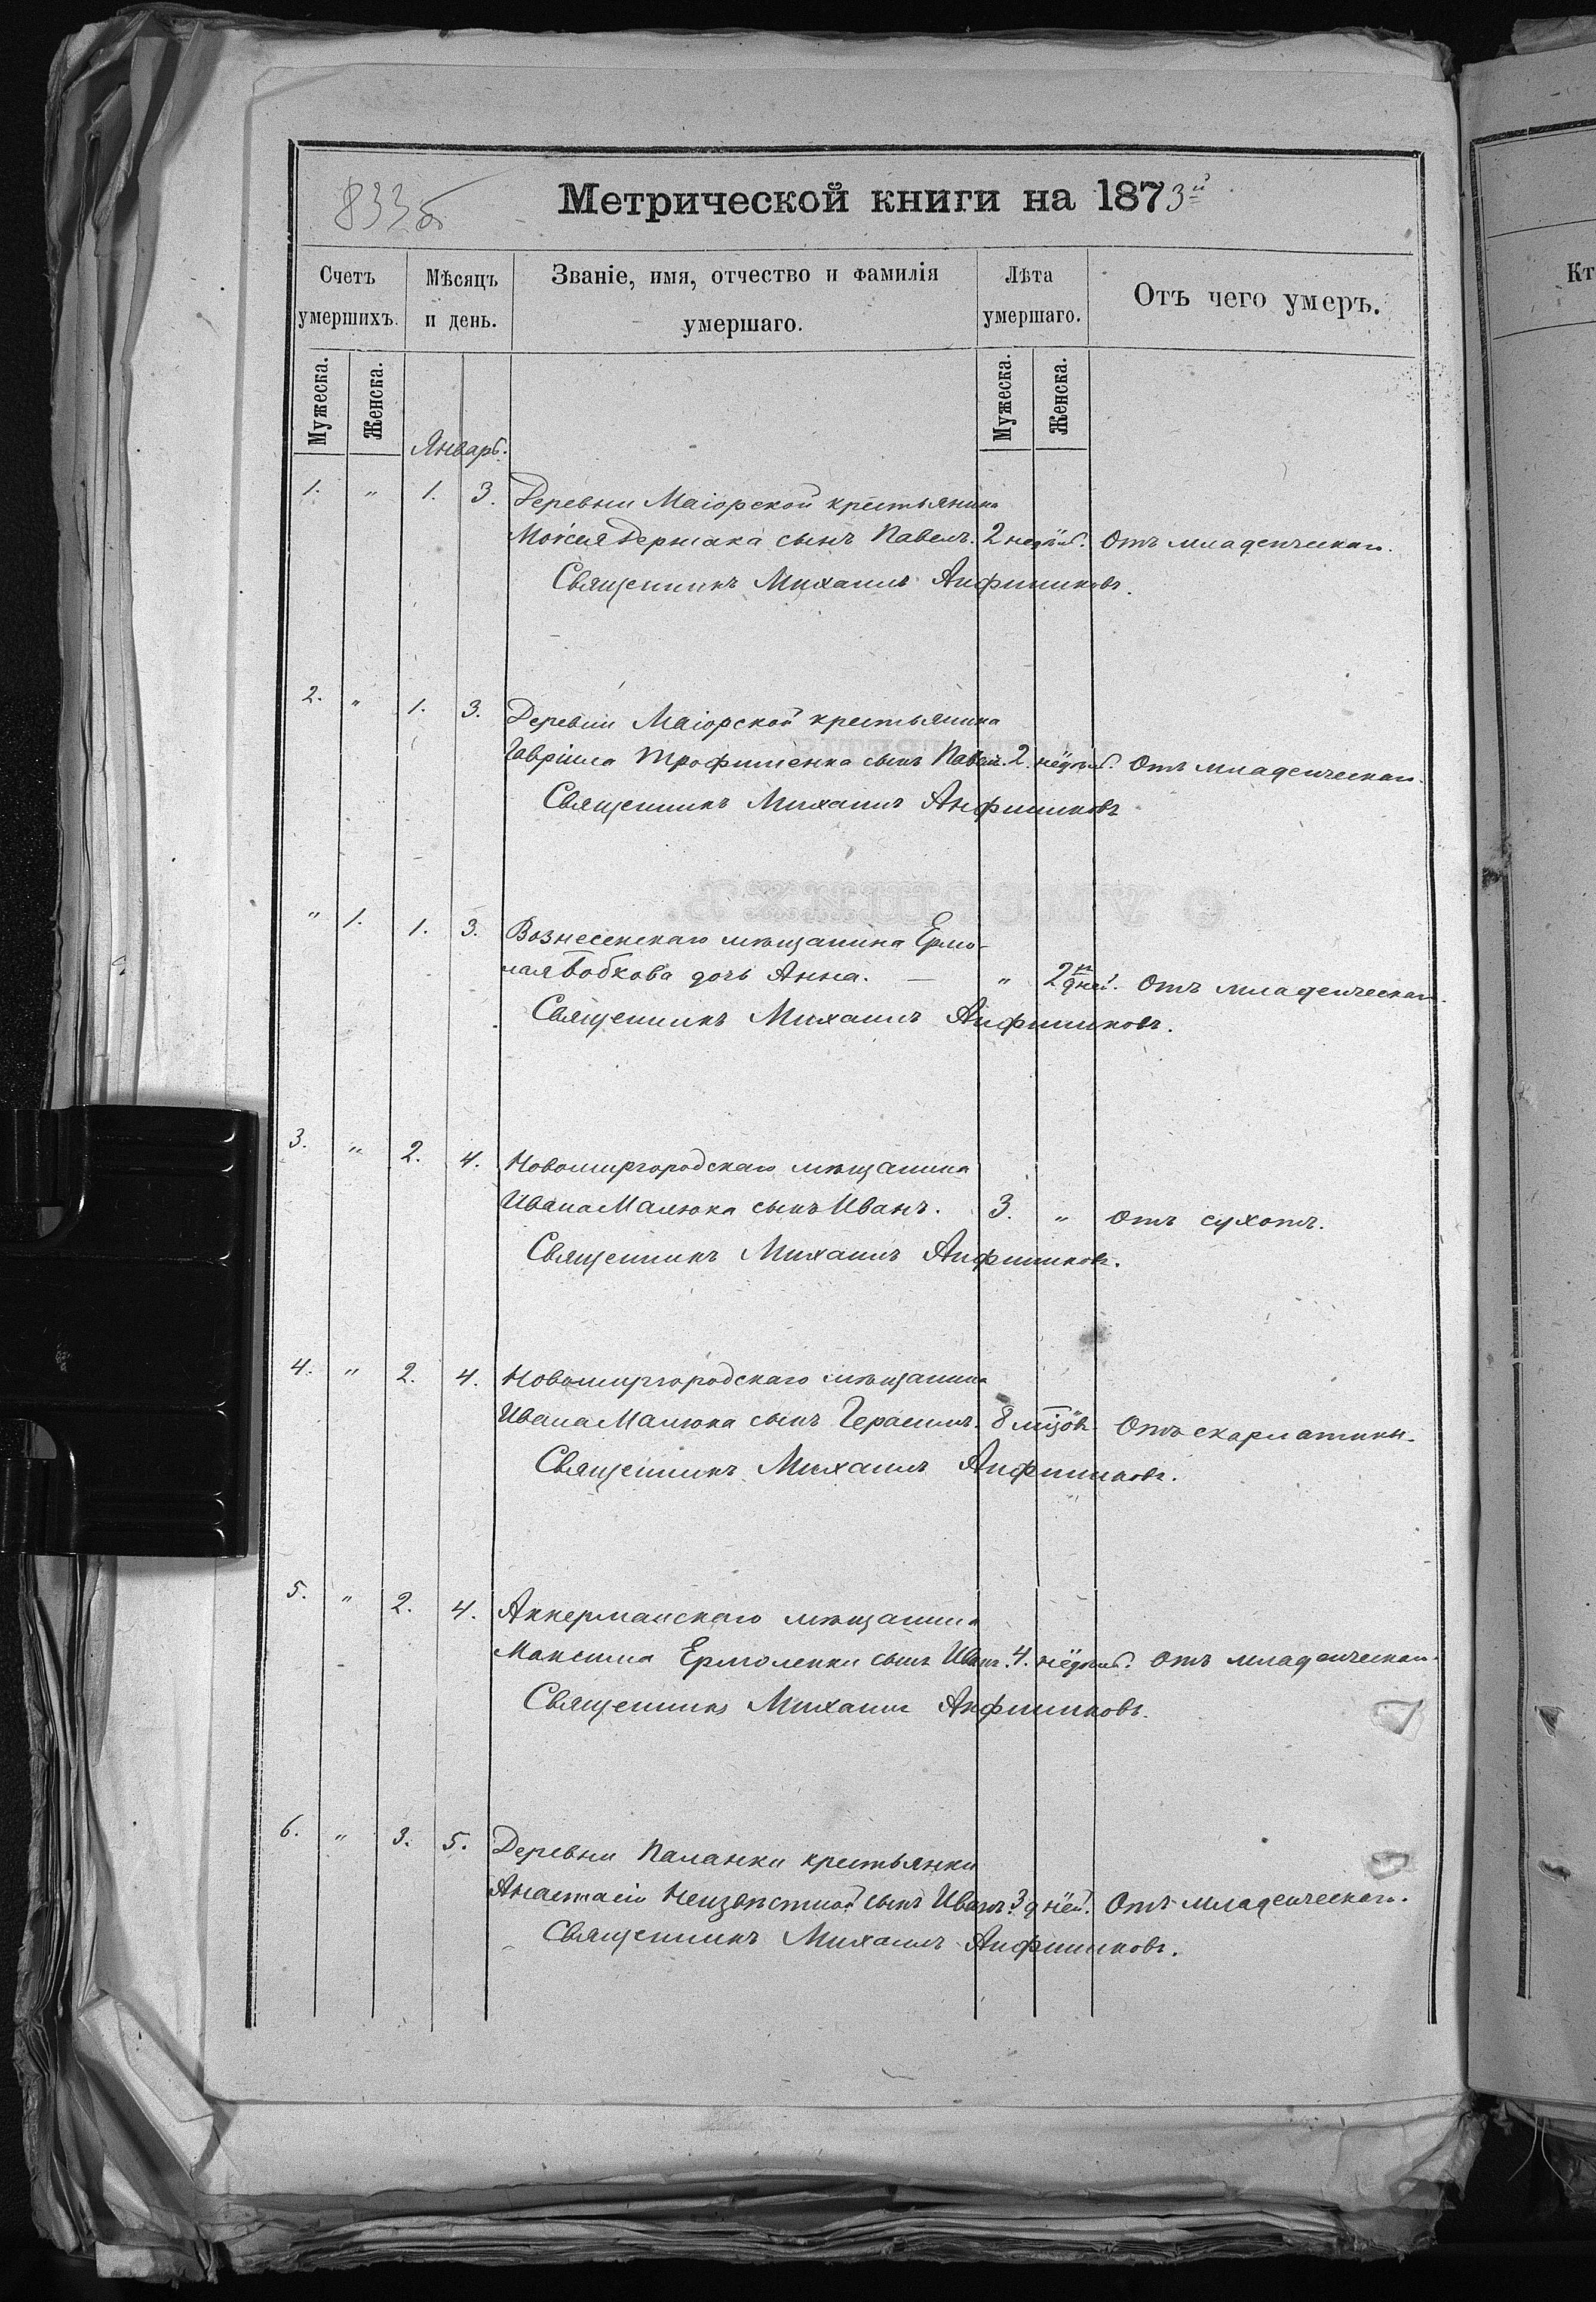 833 об
Метрической книги на 1873й
Счетъ умершихъ.
Мѣсяцъ и день.
Званіе, имя, отчество и фамилія умершаго.
Лѣта умершаго.
Отъ чего умеръ.
Мужеска.
Женска.
Январь.
Мужеска.
Женска.
1. " 1. 3. Деревни Маіорской крестьянина
Мойсея Держака сынъ Павелъ. 2 недѣль. Отъ младенческаго.
Священникъ Михаилъ Анфиминковъ.
2. " 1. 3. Деревни Маіорской крестьянина
Гавріила Трофименка сынъ Павелъ. 2. недѣль. Отъ младенческаго.
Священникъ Михаилъ
" 1. 1. 3. Вознесенскаго мѣщанина Ермо-
лая Бобкова дочь Анна. — " 2 дней. Отъ младенческаго.
Священникъ Михаилъ
3. " 2. 4. Новомиргородскаго мѣщанина
Ивана Малюка сынъ Иванъ. 3. " Отъ сухотъ.
Священникъ Михаилъ
4. " 2. 4. Новомиргородскаго мѣщанина
Ивана Малюка сынъ Герасимъ. 8 мцовъ. Отъ скарлатины.
Священникъ Михаилъ
5. " 2. 4. Аккерманскаго мѣщанина
Максима Ермоленки сынъ Иванъ. 4. недѣль. Отъ младенческаго.
Священникъ Михаилъ
6. " 3. 5. Деревни Паланки крестьянки
Анастасіи Неизвѣстной сынъ Иванъ. 3 дней. Отъ младенческаго.
Священникъ Михаилъ
Кт